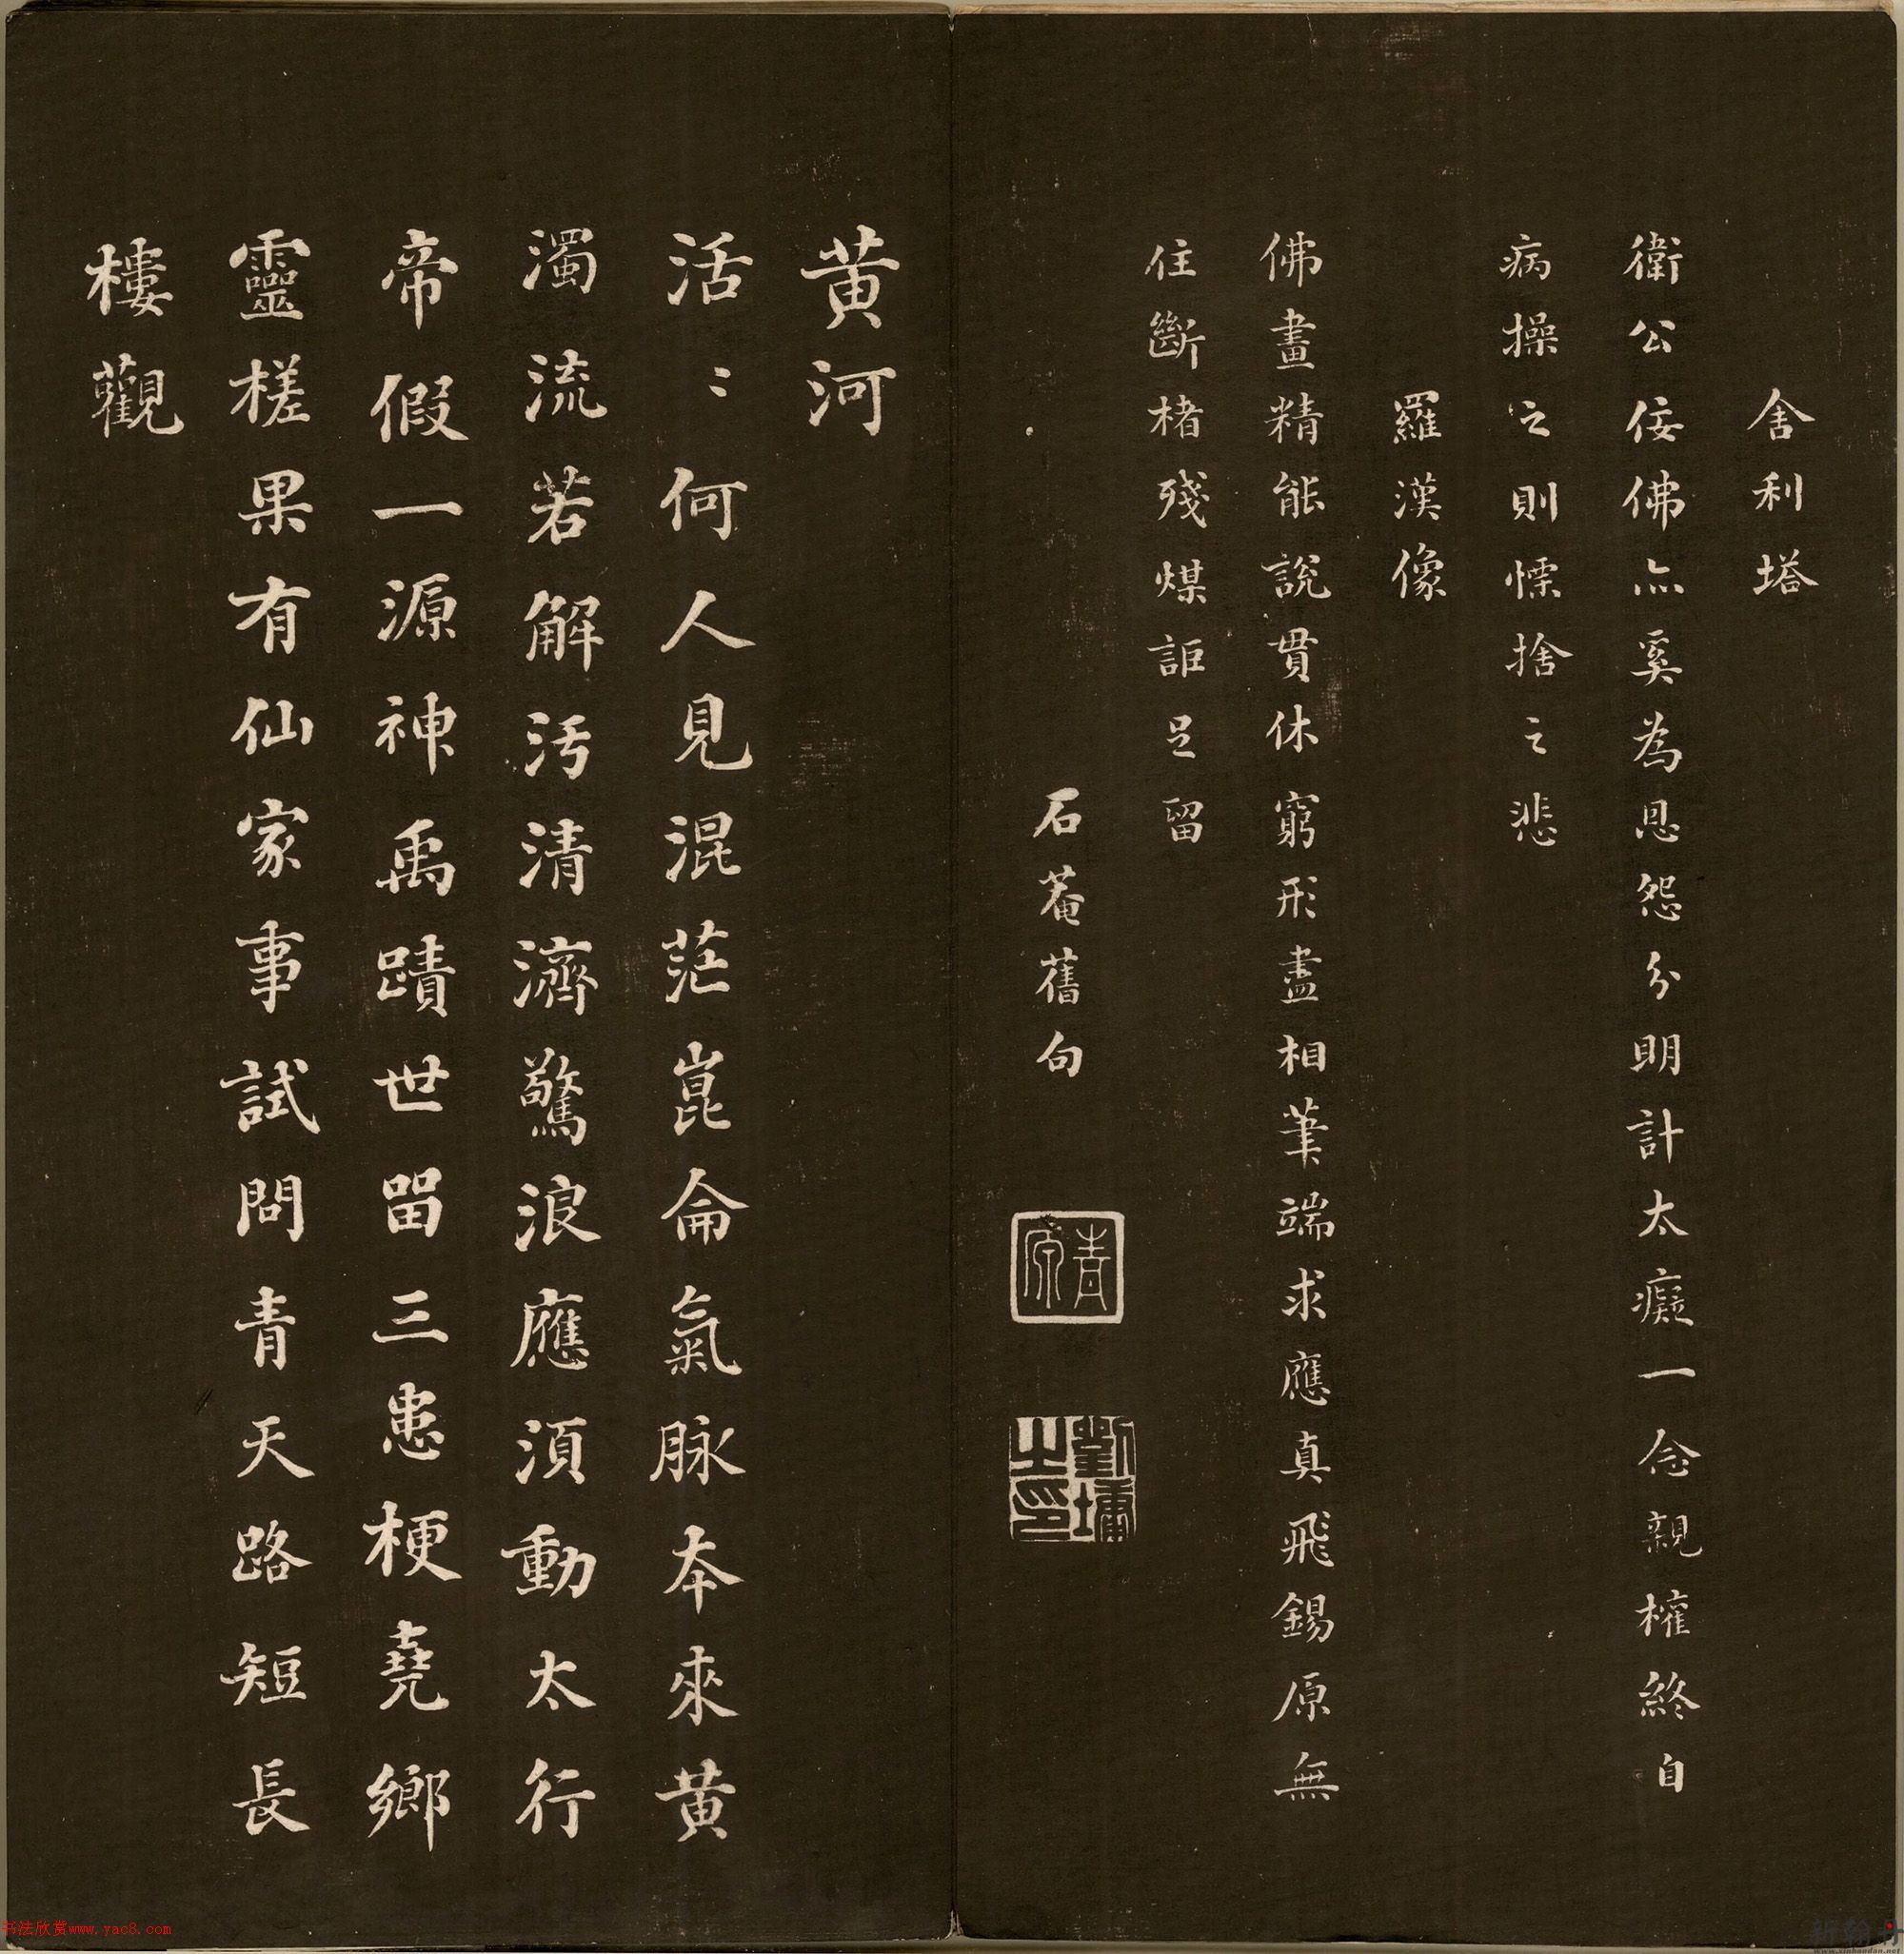 舍利塔
衛公佞佛亦奚為恩怨分明計太癡一念親權終自
病操之則慄捨之悲
羅漢像
佛畫精能說貫休窮形盡相筆端求應真飛錫原無
住斷楮殘煤詎足留
石菴舊句
劉墉之印
黃河
活〻何人見混茫崑侖氣脉本來黃
濁流若解汚清濟驚浪應須動太行
帝假一源神禹蹟世留三患梗堯鄉
靈槎果有仙家事試問青天路短長
樓觀
书法欣赏www.yac8.com